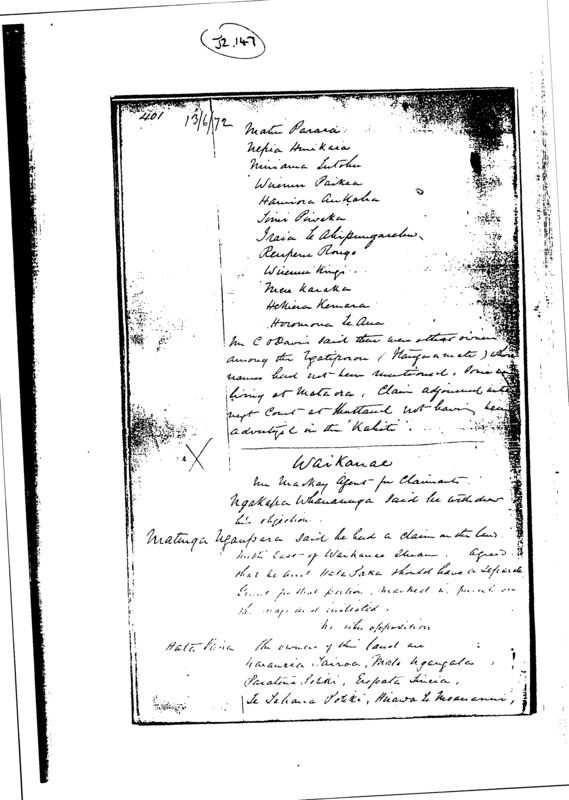 J2.147
401 13/6/72
Matiu Parara
Nepia Hurikara
Miriama
Wiremu Paikea
Hamiora Aukaha
Timi Paweka
Iraia Te Ahipungarehu
Reupene Rongo
Wiremu Kingi
Mere Karaka
Hekiera Kemara
Horomona Te Ana
Mr C O Davis said there were other owners
among the Ngatiporou (Hangamata) whose
names had not been mentioned, some are
living at Mataora, Claim adjourned until
next Court at Shortland not having been
advertized in the "Kahiti".
X
Waikanae
Mr Mackay Agent for Claimants
Ngakapa Whanaunga said he withdrew
his objection.
Matenga said he had a claim on the land
North East of Waikanae Stream. Agreed
that he and Hata Paka should have a separate
Grant for that portion, marked in pencil on
the map and initialed.
No other opposition
Hata The owners of this land are
Tairoa, Ngangala,
Potiki, Eropata
Te Tahana Potiki, Hirawa Te Moananui,